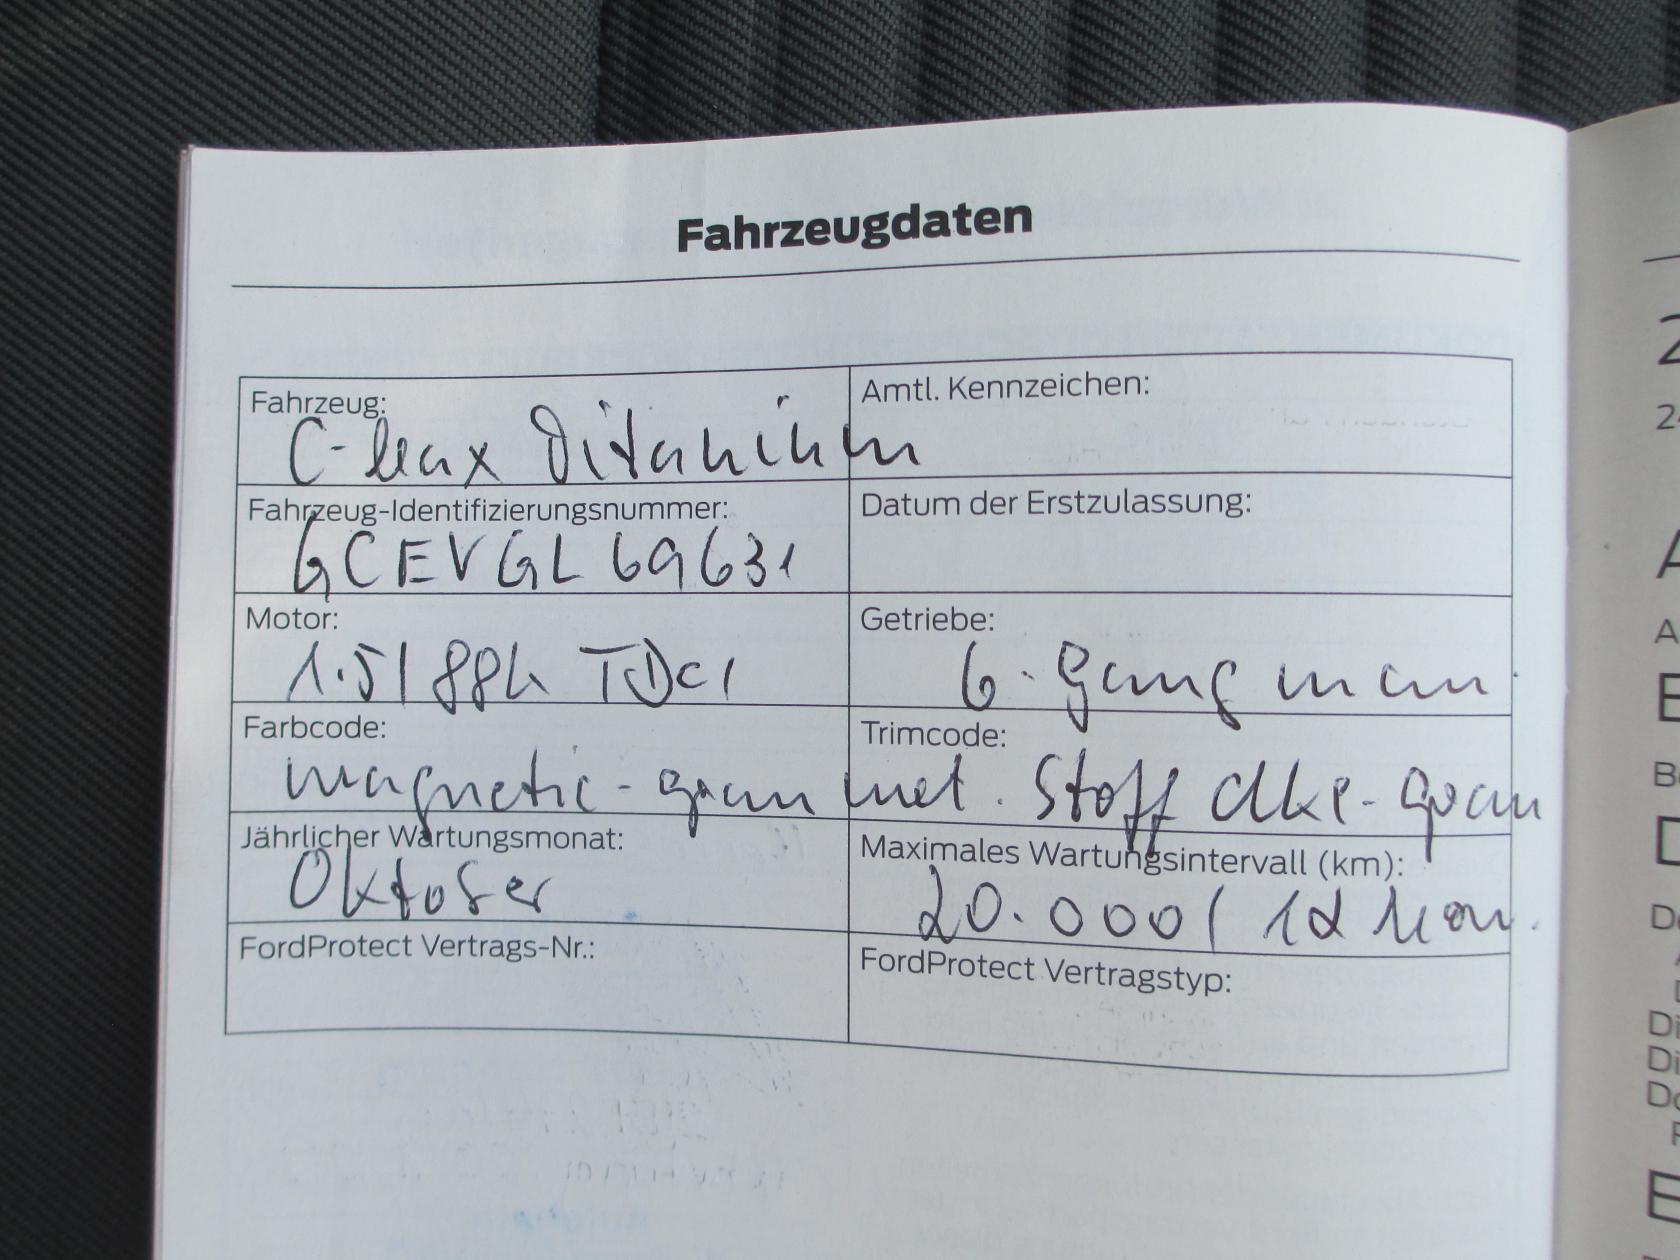 Fahrzeugdaten
Fahrzeug:
C-Max Titanium
Amtl. Kennzeichen:
Fahrzeug-Identifizierungsnummer:
GCEVGL69631
Datum der Erstzulassung:
Motor:
1.5l 88k TDCI
Getriebe:
6-gang man.
Farbcode:
magnetic-grau met.
Trimcode:
Stoff dkl-grau
Jährlicher Wartungsmonat:
Oktober
Maximales Wartungsintervall (km):
20.000/12 Mon.
FordProtect Vertrags-Nr.:
FordProtect Vertragstyp: